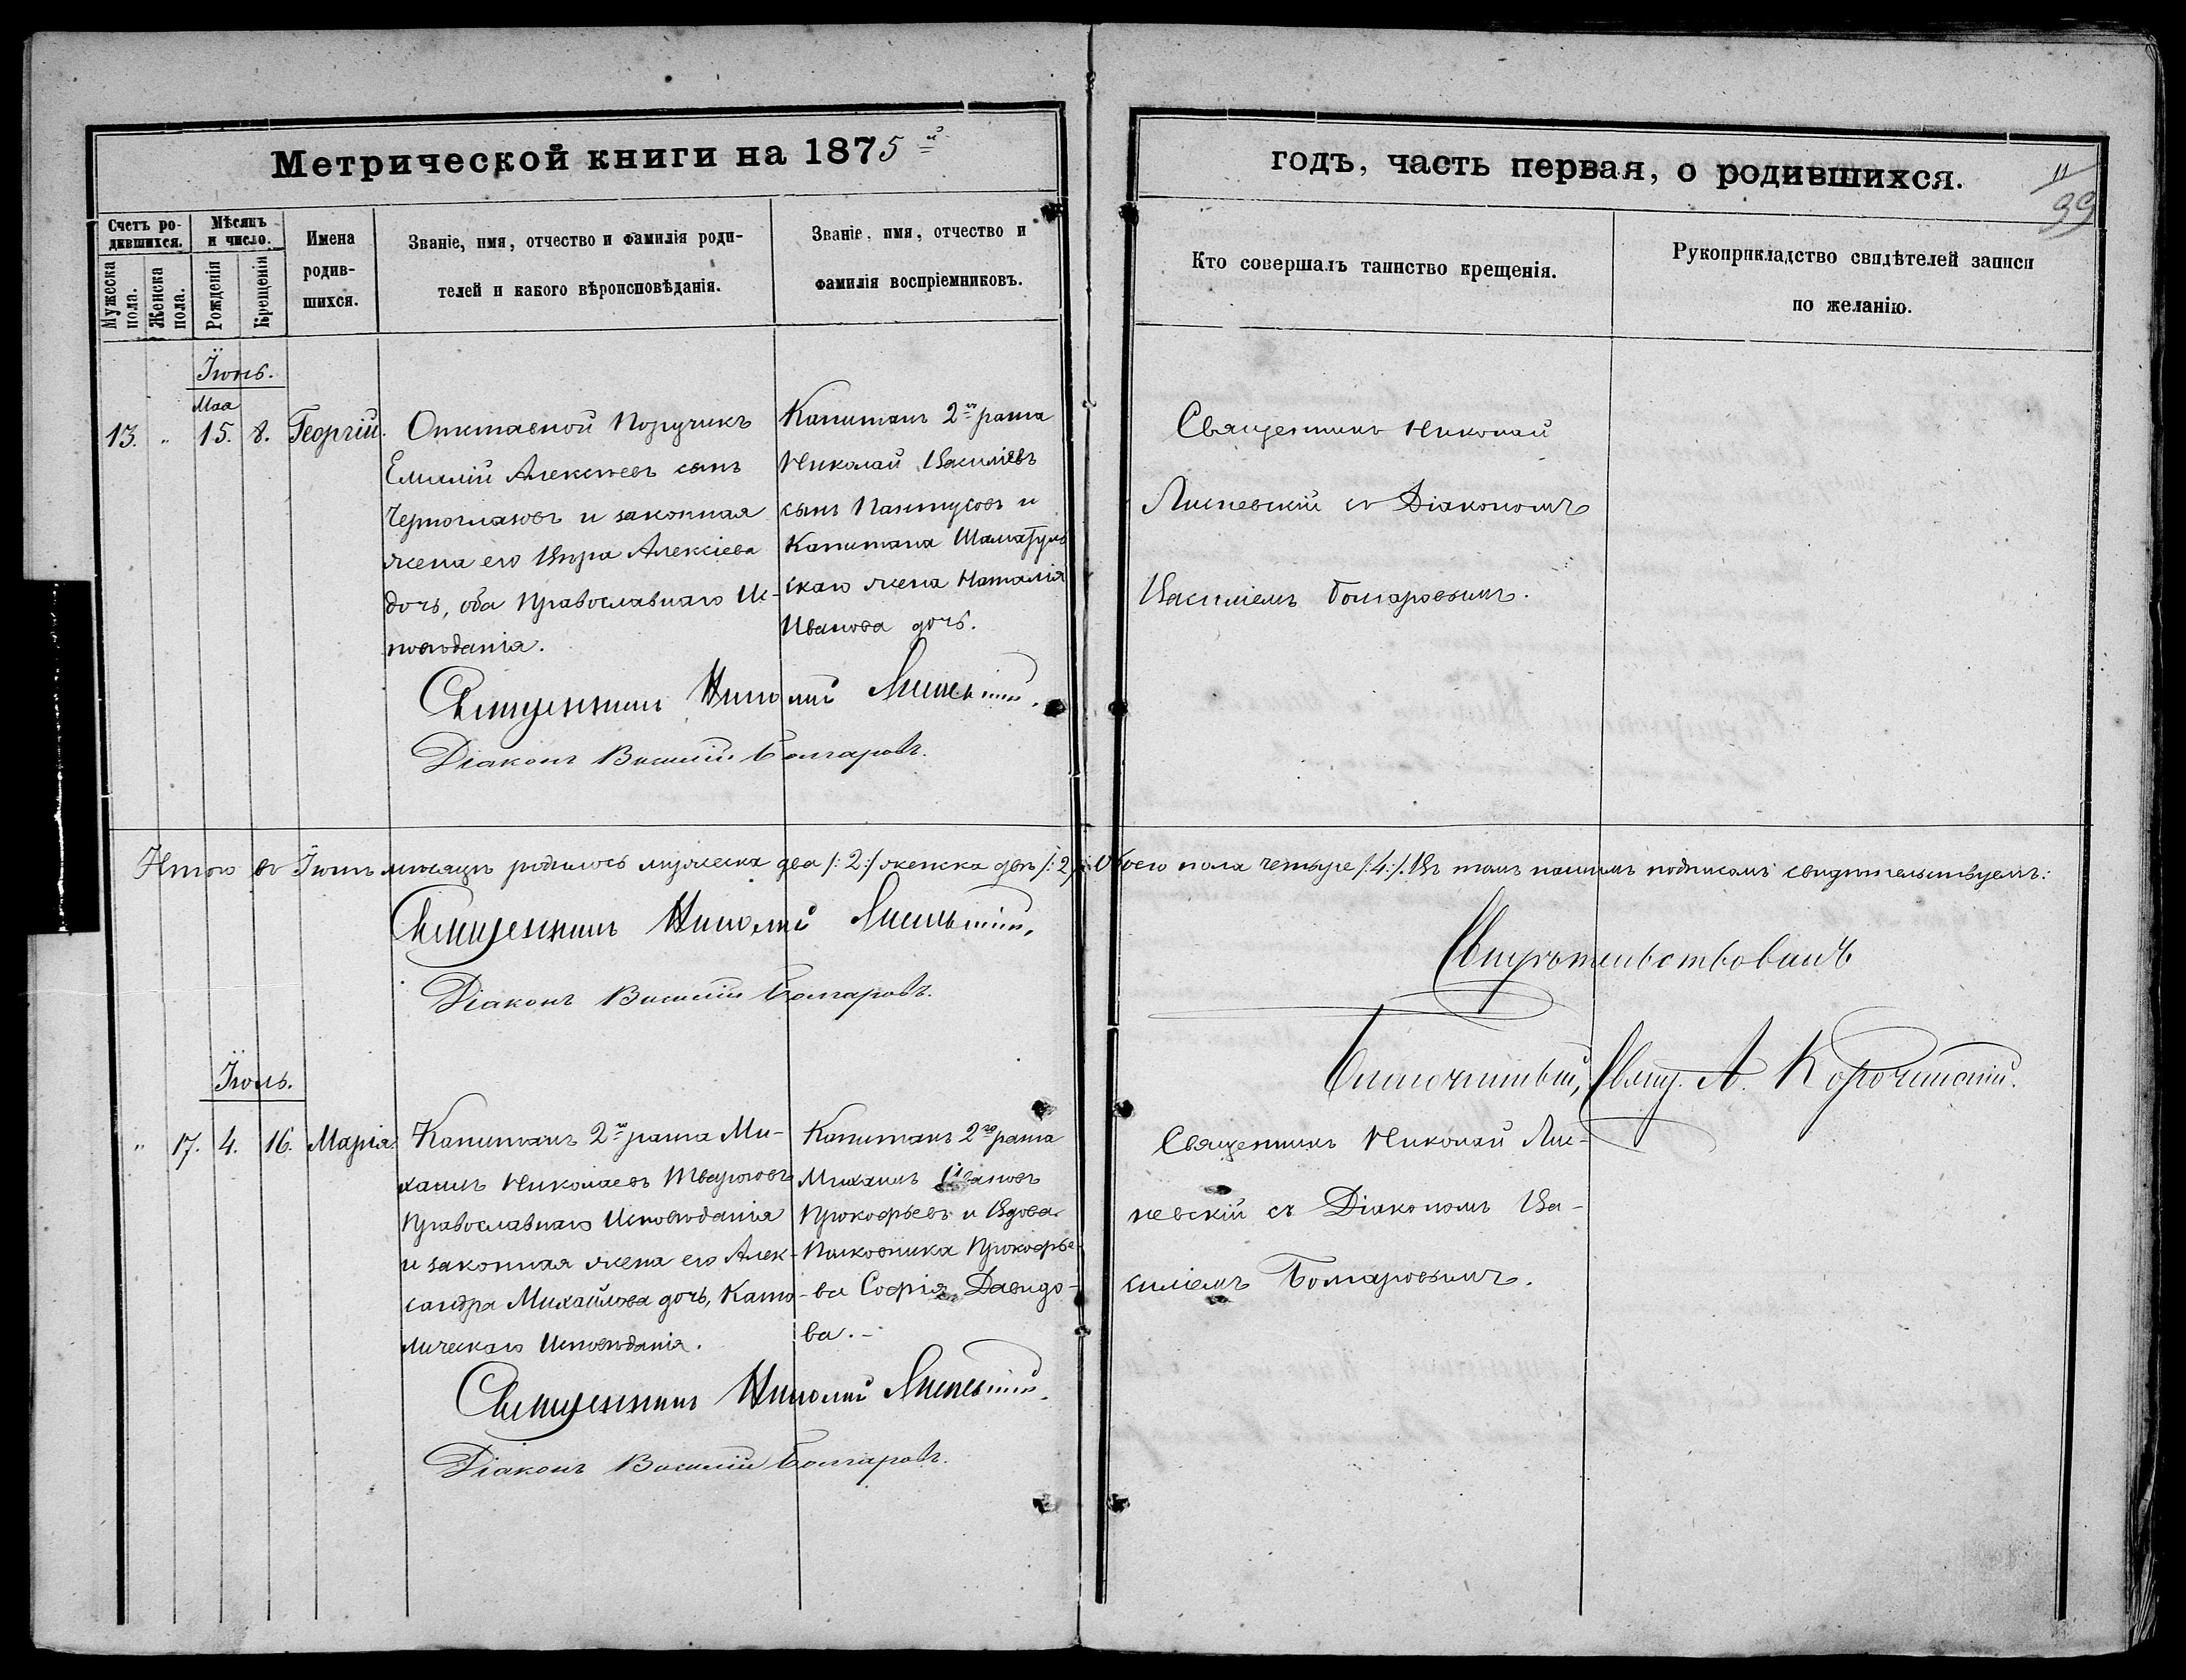 Метрической книги на 1875й
годъ, часть первая, о родившихся.
11
99
Счетъ ро-
дившихся.
Мѣсяцъ
и число.
Мужеска
пола.
Женска
пола.
Рожденія
Крещенія
Имена
родив-
шихся.
Званіе, имя, отчество и фамилія роди-
телей и какого вѣроисповѣданія.
Званіе, имя, отчество и
фамилія воспріемниковъ.
Кто совершалъ таинство крещенія.
Рукоприкладство свидѣтелей записи
по желанію.
Іюнь.
Мая
13. " 15. 8. Георгій.
Отставной Поручикъ
Емилій Алексѣевъ сынъ
Черноглазовъ и законная
жена его Вѣра Алексіева
дочь, оба Православнаго Ис-
повѣданія.
Капитанъ 2го ранга
Николай Василіевъ
сынъ Пантусовъ и
Капитана
скаго жена Наталія
Иванова дочь.
Священникъ Николай
Лисневскій съ Діакономъ
Василіемъ Болгаровымъ.
Священникъ Николай Лисневскій.
Діаконъ Василій Болгаровъ.
Итого въ Іюнѣ мѣсяцѣ родилось мужеска два /:2:/ женска двѣ /:2:/ Обоего пола четыре /:4:/. Въ томъ нашимъ подписомъ свидѣтельствуемъ:
Священникъ Николай Лисневскій.
Діаконъ Василій Болгаровъ.
Свидѣтельствовалъ
Благочинный, Свящ. А. Корочанскій.
Іюль.
" 17. 4. 16. Марія.
Капитанъ 2го ранга Ми-
хаилъ Николаевъ
Православнаго Исповѣданія
и законная жена его Алек-
сандра Михайлова дочь, Като-
лическаго Исповѣданія.
Капитанъ 2го ранга
Михаилъ Ивановъ
Прокофьевъ и Вдова
Полковника Прокофье-
ва Софія Давидо-
ва.-
Священникъ Николай Лис-
невскій съ Діакономъ Ва-
силіемъ Болгаровымъ.
Священникъ Николай Лисневскій.
Діаконъ Василій Болгаровъ.